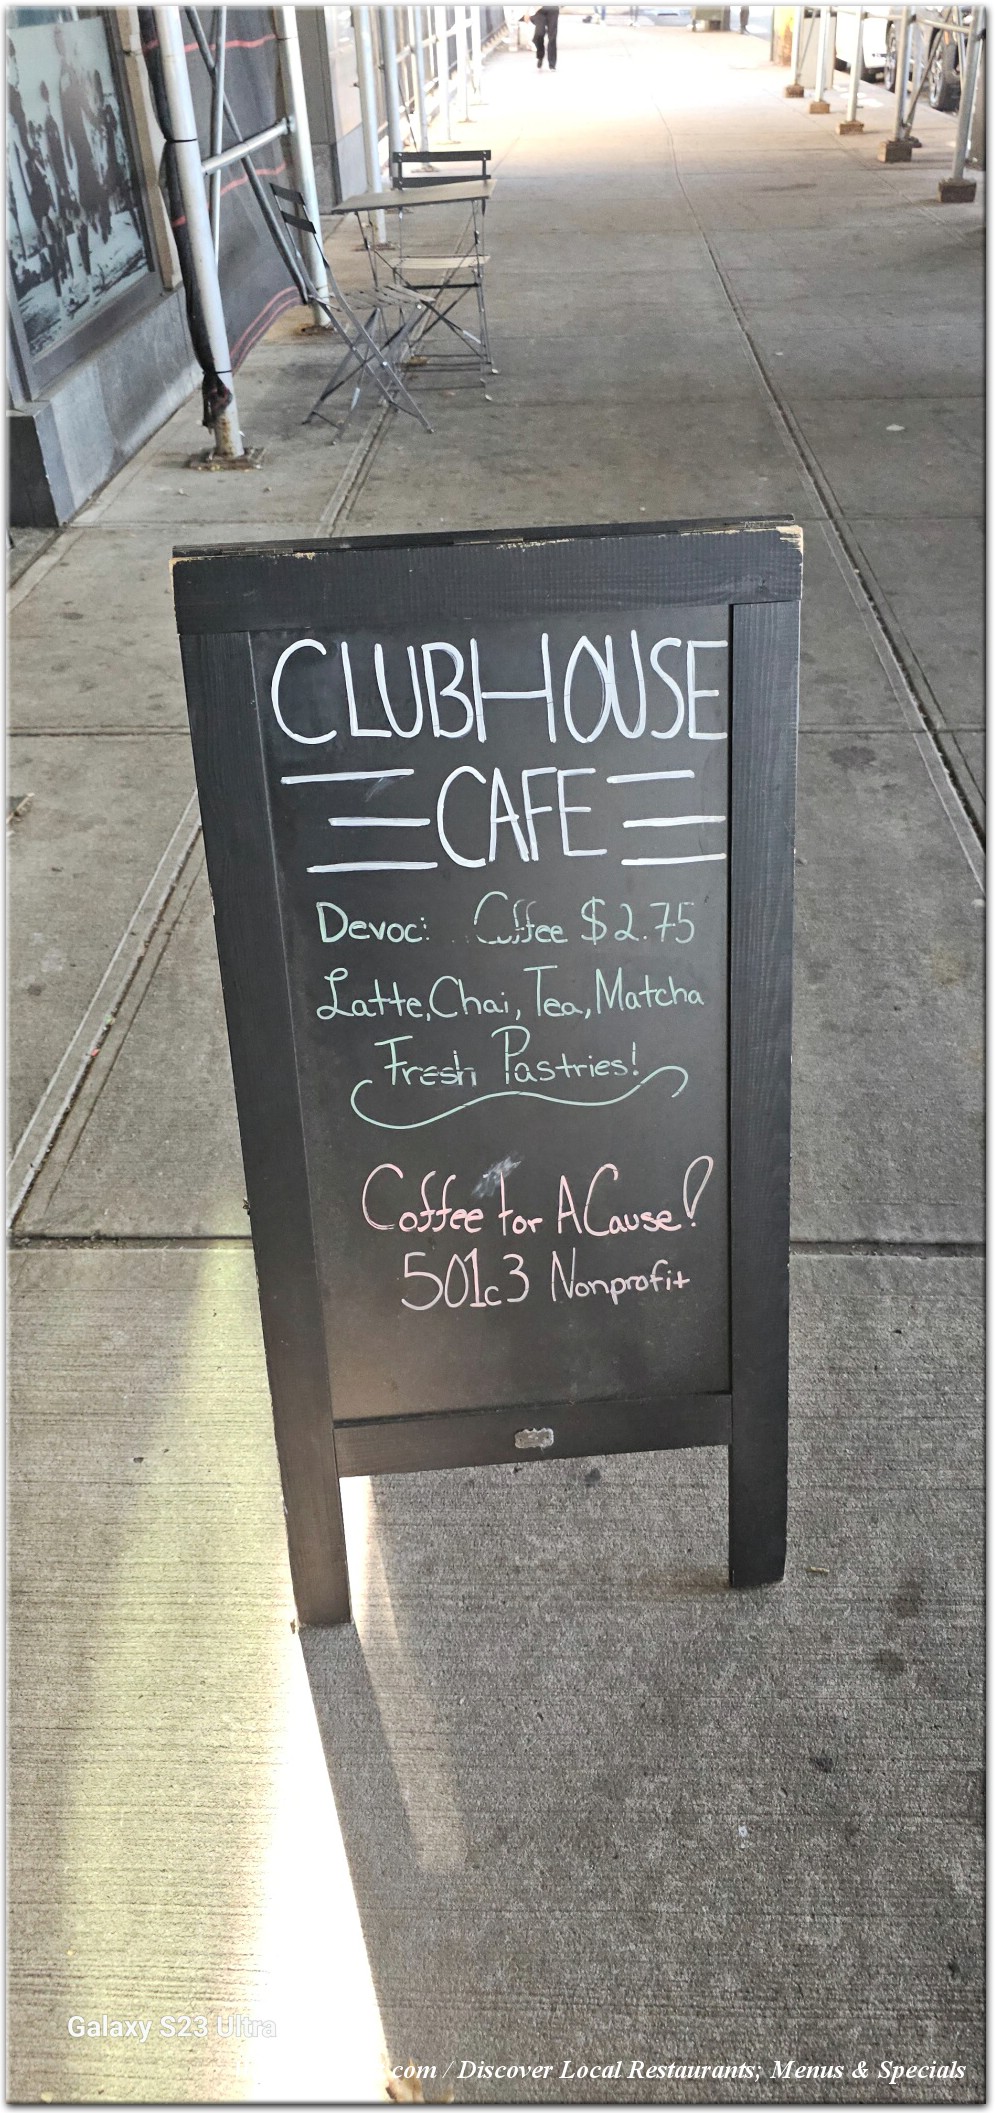 CLUBHOUSE
CAFE
Devoci Coffee $2.75
Latte, Chai, Tea, Matcha
Fresh Pastries!
Coffee for A Cause!
501c3 Nonprofit
Galaxy S23 Ultra
com / Discover Local Restaurants; Menus & Specials